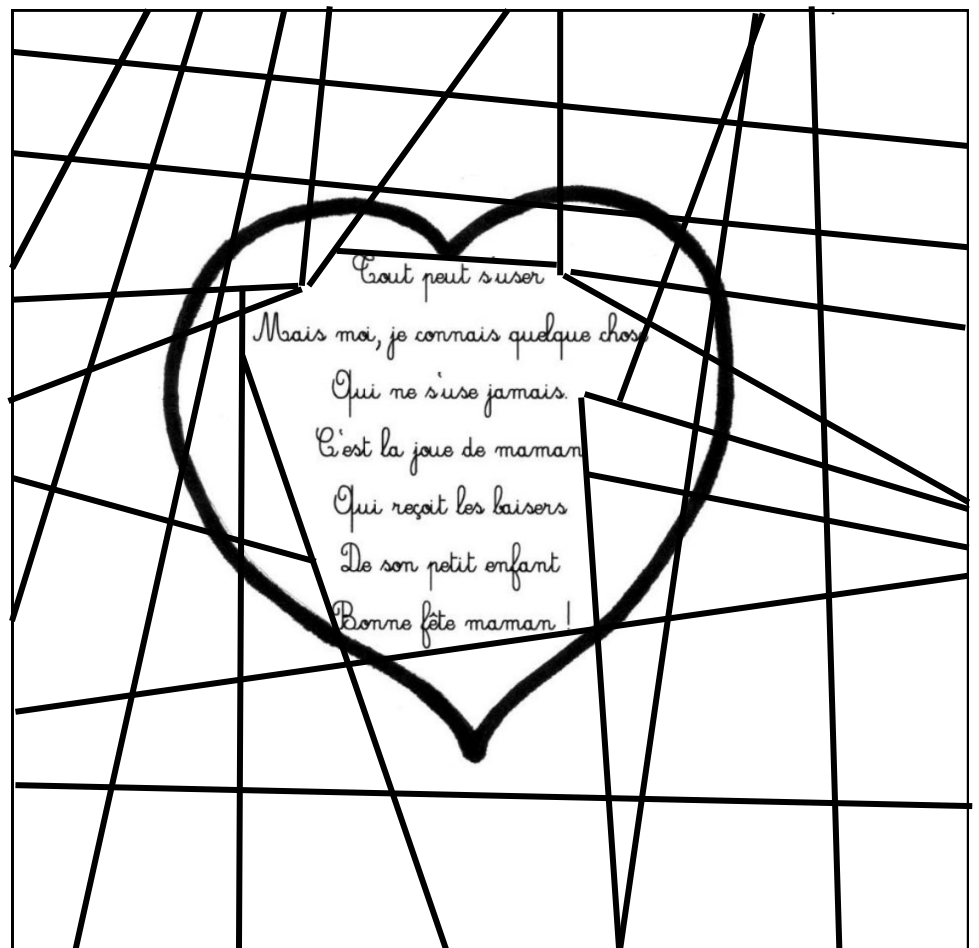 Tout peut s'user
Mais moi, je connais quelque chose
Qui ne s'use jamais.
C'est la joue de maman
Qui reçoit les baisers
De son petit enfant
Bonne fête maman !